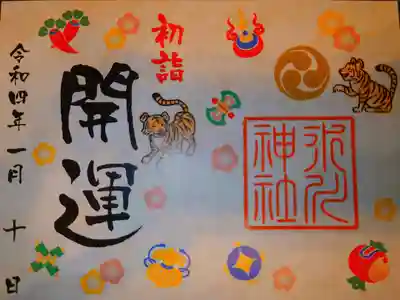 初詣
氷川
神社
開運
令和四年一月十日